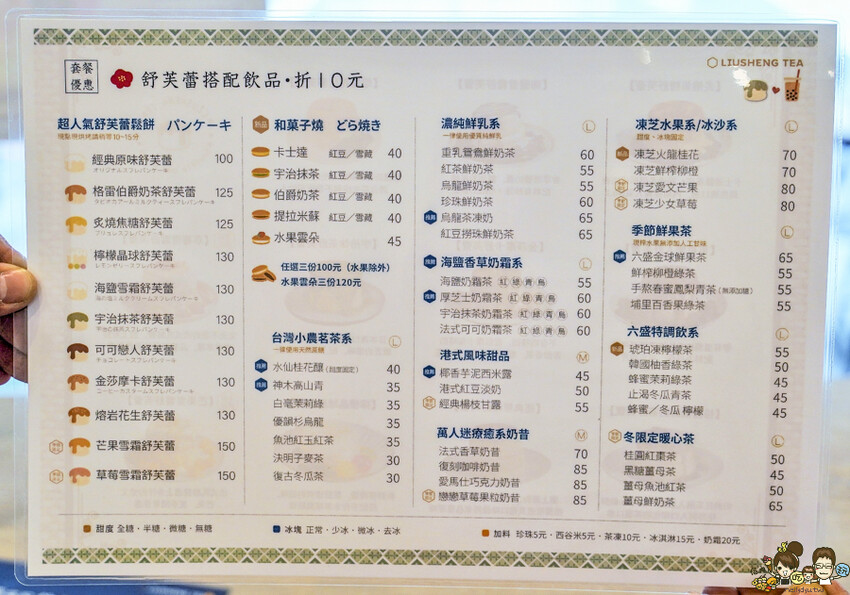 套餐
優惠
舒芙蕾搭配飲品・折10元
LIUSHENG TEA
超人氣舒芙蕾鬆餅 パンケーキ
經典原味舒芙蕾 100
オリジナルスフレパンケーキ
格雷伯爵奶茶舒芙蕾 125
炙燒焦糖舒芙蕾 125
檸檬晶球舒芙蕾 130
レモンゼリースフレパンケーキ
海鹽雪霜舒芙蕾 130
宇治抹茶舒芙蕾 130
可可戀人舒芙蕾 130
チョコレートスフレパンケーキ
金莎摩卡舒芙蕾 130
熔岩花生舒芙蕾 130
芒果雪霜舒芙蕾 150
草莓雪霜舒芙蕾 150
新品 和菓子燒 どら焼き
卡士達 紅豆／雪藏 40
宇治抹茶 紅豆／雪藏 40
伯爵奶茶 紅豆／雪藏 40
提拉米蘇 紅豆／雪藏 40
水果雲朵 45
任選三份100元（水果除外）
水果雲朵三份120元
台灣小農茗茶系 L
一律使用天然蔗糖
推薦 水仙桂花釀（甜度固定） 40
推薦 神木高山青 35
白毫茉莉綠 35
優韻杉烏龍 35
魚池紅玉紅茶 35
決明子麥茶 30
復古冬瓜茶 30
濃純鮮乳系 L
一律使用優質純鮮乳
重乳鴛鴦鮮奶茶 60
紅茶鮮奶茶 55
烏龍鮮奶茶 55
珍珠鮮奶茶 60
推薦 烏龍茶凍奶 65
紅豆撈珠鮮奶茶 65
推薦 海鹽香草奶霜系 L
海鹽奶霜茶 紅 綠 青 烏 55
推薦 厚芝士奶霜茶 紅 綠 青 烏 60
宇治抹茶奶霜茶 紅 綠 青 烏 60
法式可可奶霜茶 紅 綠 青 烏 60
港式風味甜品 M
推薦 椰香芋泥西米露 45
港式紅豆淡奶 50
經典楊枝甘露 55
萬人迷療癒系奶昔 M
法式香草奶昔 70
復刻咖啡奶昔 85
愛馬仕巧克力奶昔 85
戀戀草莓果粒奶昔 85
凍芝水果系/冰沙系 L
甜度、冰塊固定
新品 凍芝火龍桂花 70
凍芝鮮榨柳橙 70
凍芝愛文芒果 80
凍芝少女草莓 80
季節鮮果茶 L
現榨水果無添加人工甘味
推薦 六盛金球鮮果茶 65
鮮榨柳橙綠茶 55
手熬春蜜鳳梨青茶（無添加糖） 55
埔里百香果綠茶 55
六盛特調飲系 L
新品 琥珀凍檸檬茶 55
韓國柚香綠茶 50
蜂蜜茉莉綠茶 45
止渴冬瓜青茶 45
蜂蜜／冬瓜 檸檬 45
冬限定暖心茶 L
桂圓紅棗茶 50
黑糖薑母茶 45
薑母魚池紅茶 50
薑母鮮奶茶 65
甜度 全糖・半糖・微糖・無糖
冰塊 正常・少冰・微冰・去冰
加料 珍珠5元・西谷米5元・茶凍10元・冰淇淋15元・奶霜20元